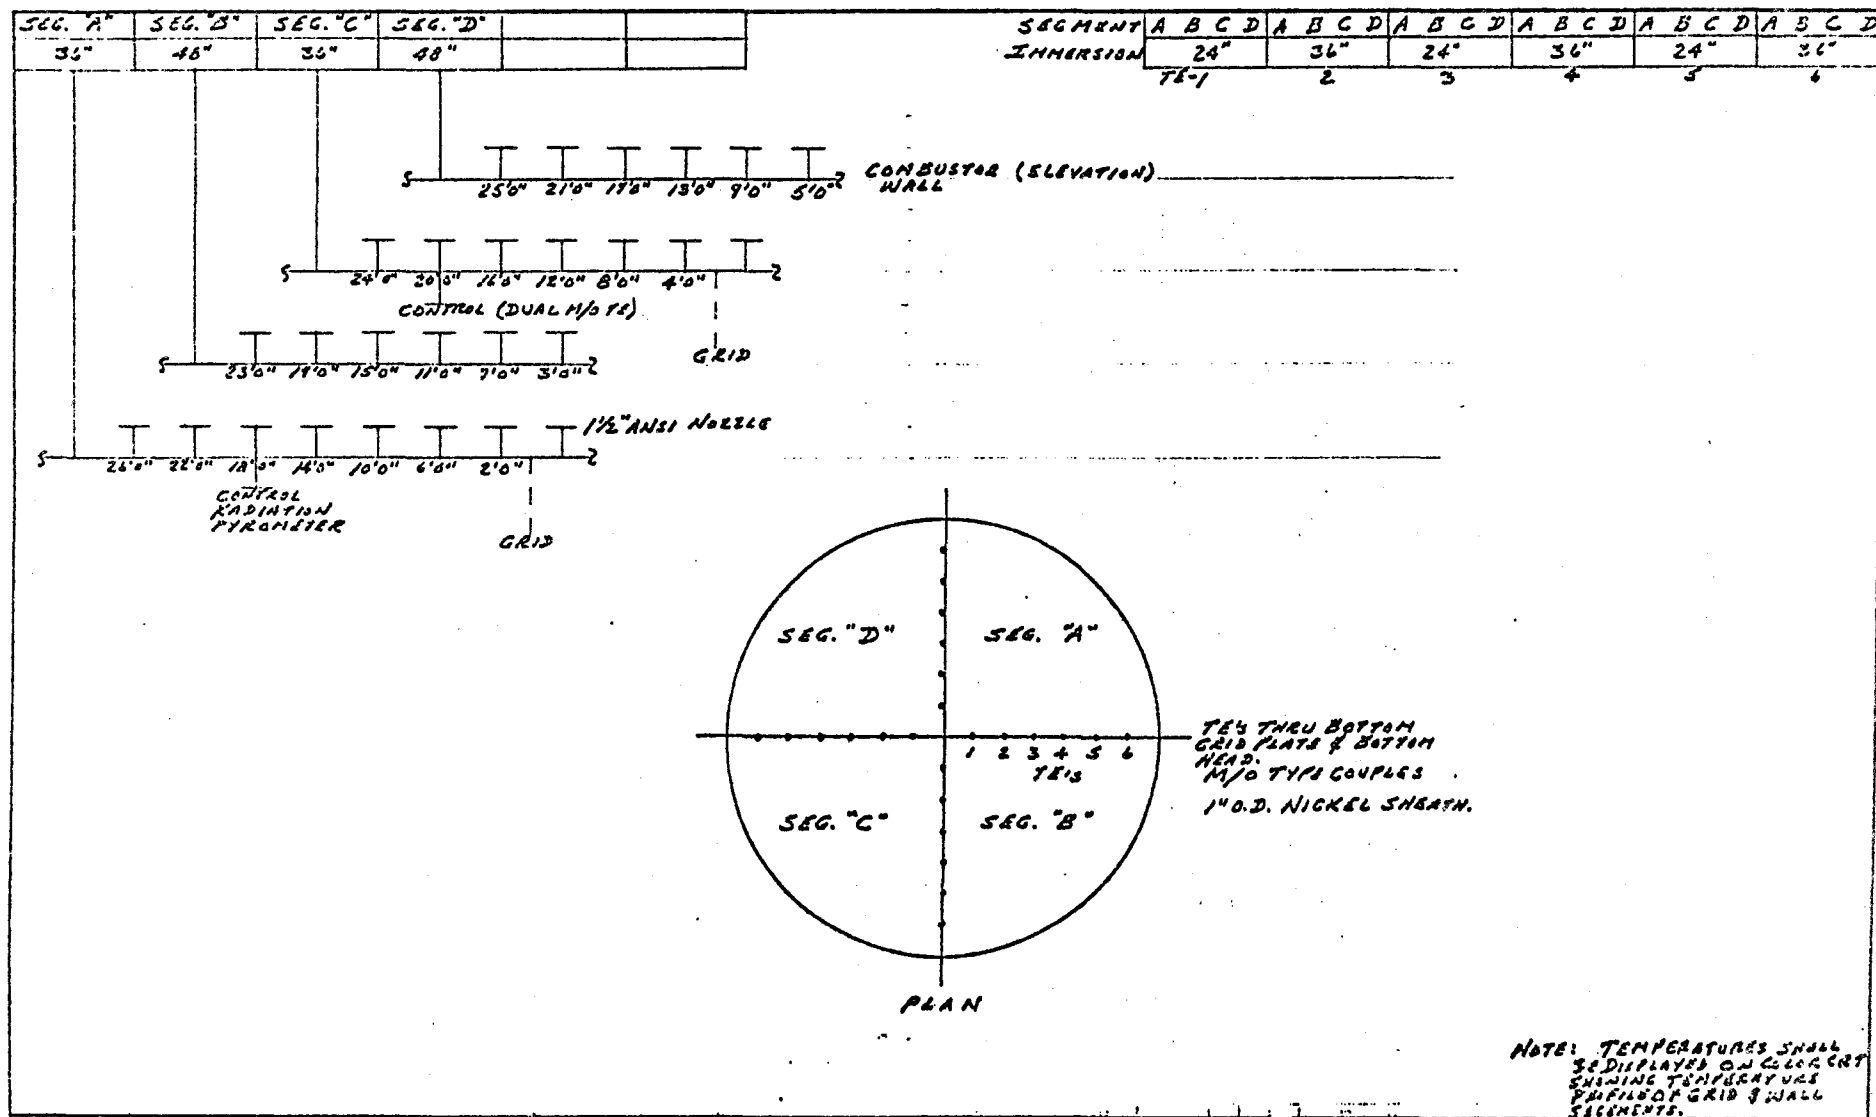 SEG. "A" SEG. "B" SEG. "C" SEG. "D"
36" 48" 36" 48"
SEGMENT A B C D A B C D A B C D A B C D A B C D A B C D
IMMERSION 24" 36" 24" 36" 24" 36"
TE-1 2 3 4 5 6
25'0" 21'0" 17'0" 13'0" 9'0" 5'0"
COMBUSTOR (ELEVATION)
WALL
24'0" 20'0" 16'0" 12'0" 8'0" 4'0"
CONTROL (DUAL M/O TE)
GRID
23'0" 19'0" 15'0" 11'0" 7'0" 3'0"
1½" ANSI NOZZLE
26'0" 22'0" 18'0" 14'0" 10'0" 6'0" 2'0"
CONTROL
RADIATION
PYROMETER
GRID
SEG. "D" SEG. "A"
1 2 3 4 5 6
TE's
TE's THRU BOTTOM
GRID PLATE & BOTTOM
HEAD.
M/O TYPE COUPLES
1" O.D. NICKEL SHEATH.
SEG. "C" SEG. "B"
PLAN
NOTE: TEMPERATURES SHALL
BE DISPLAYED ON COLOR CRT
SHOWING TEMPERATURE
PROFILE OF GRID & WALL
SEGMENTS.